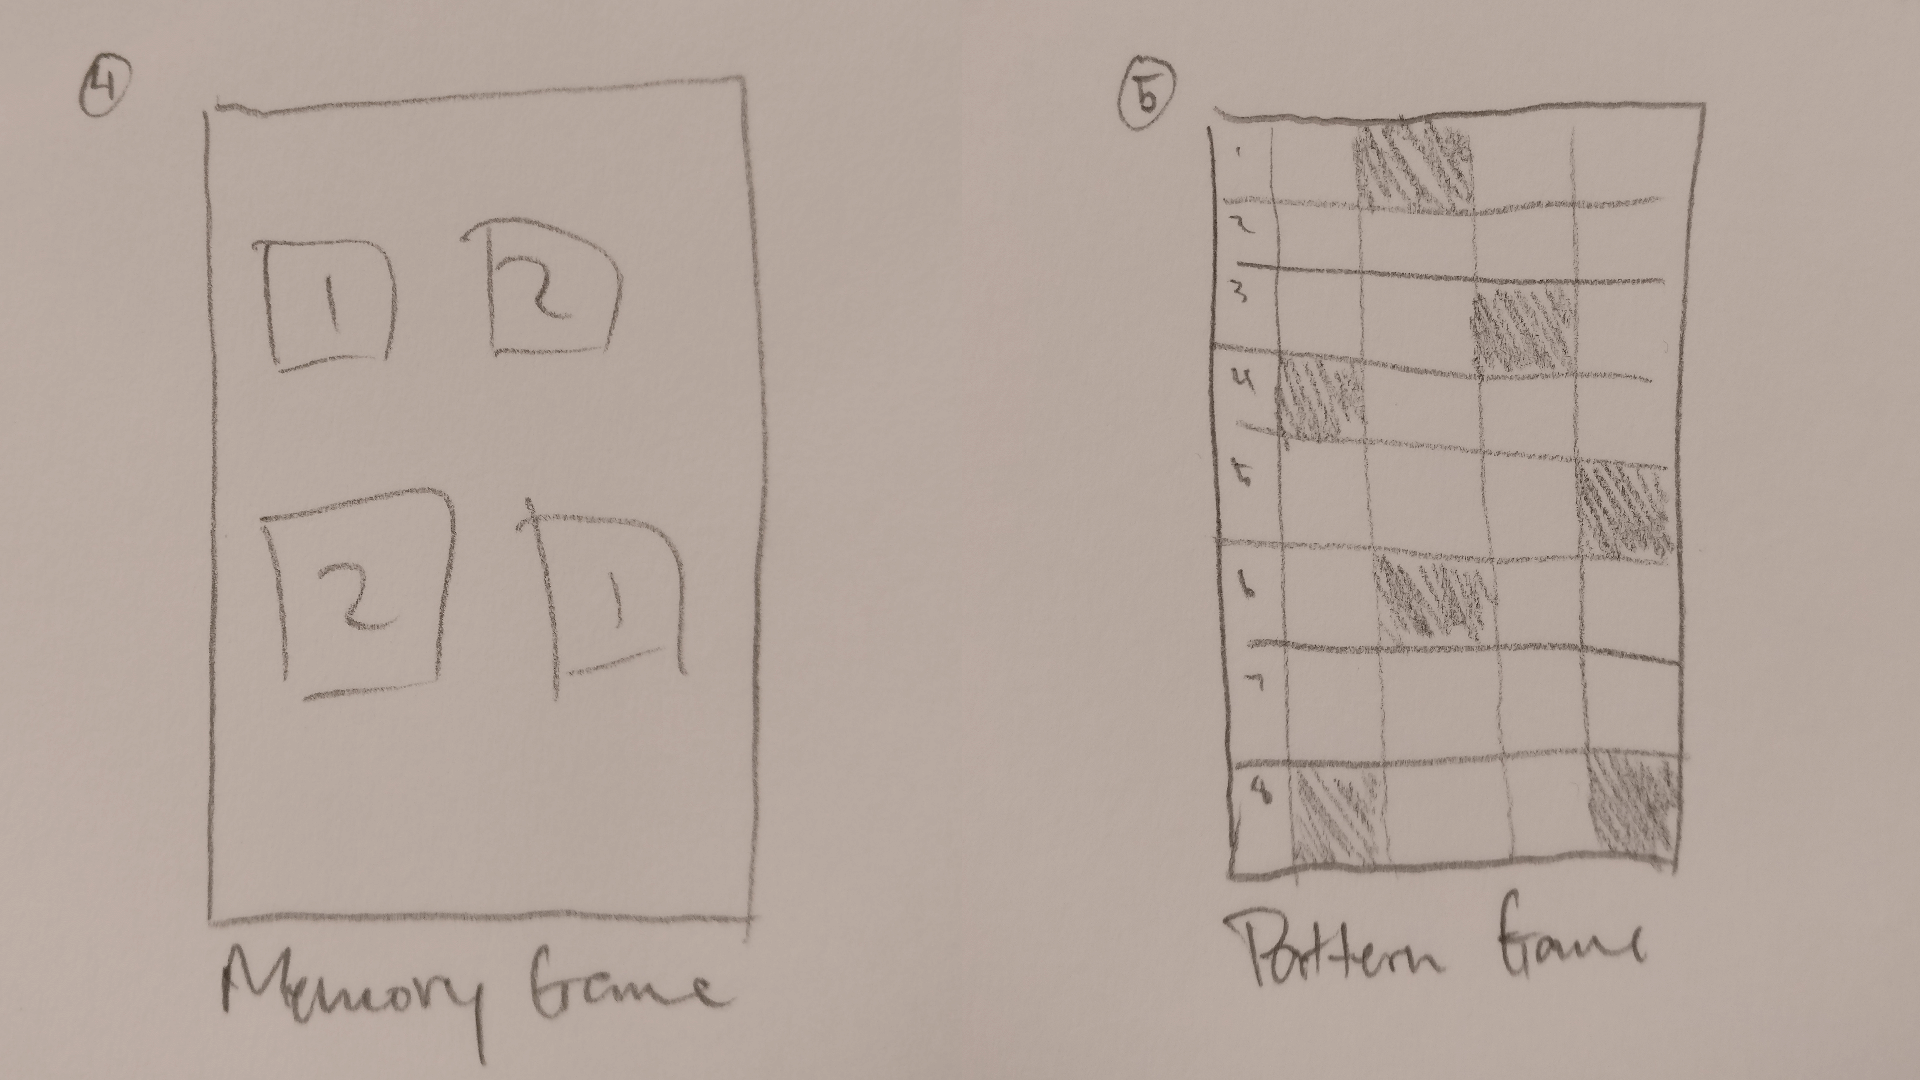 4
1 2
2 1
Memory Game
5
1
2
3
4
5
6
7
8
Pattern Game